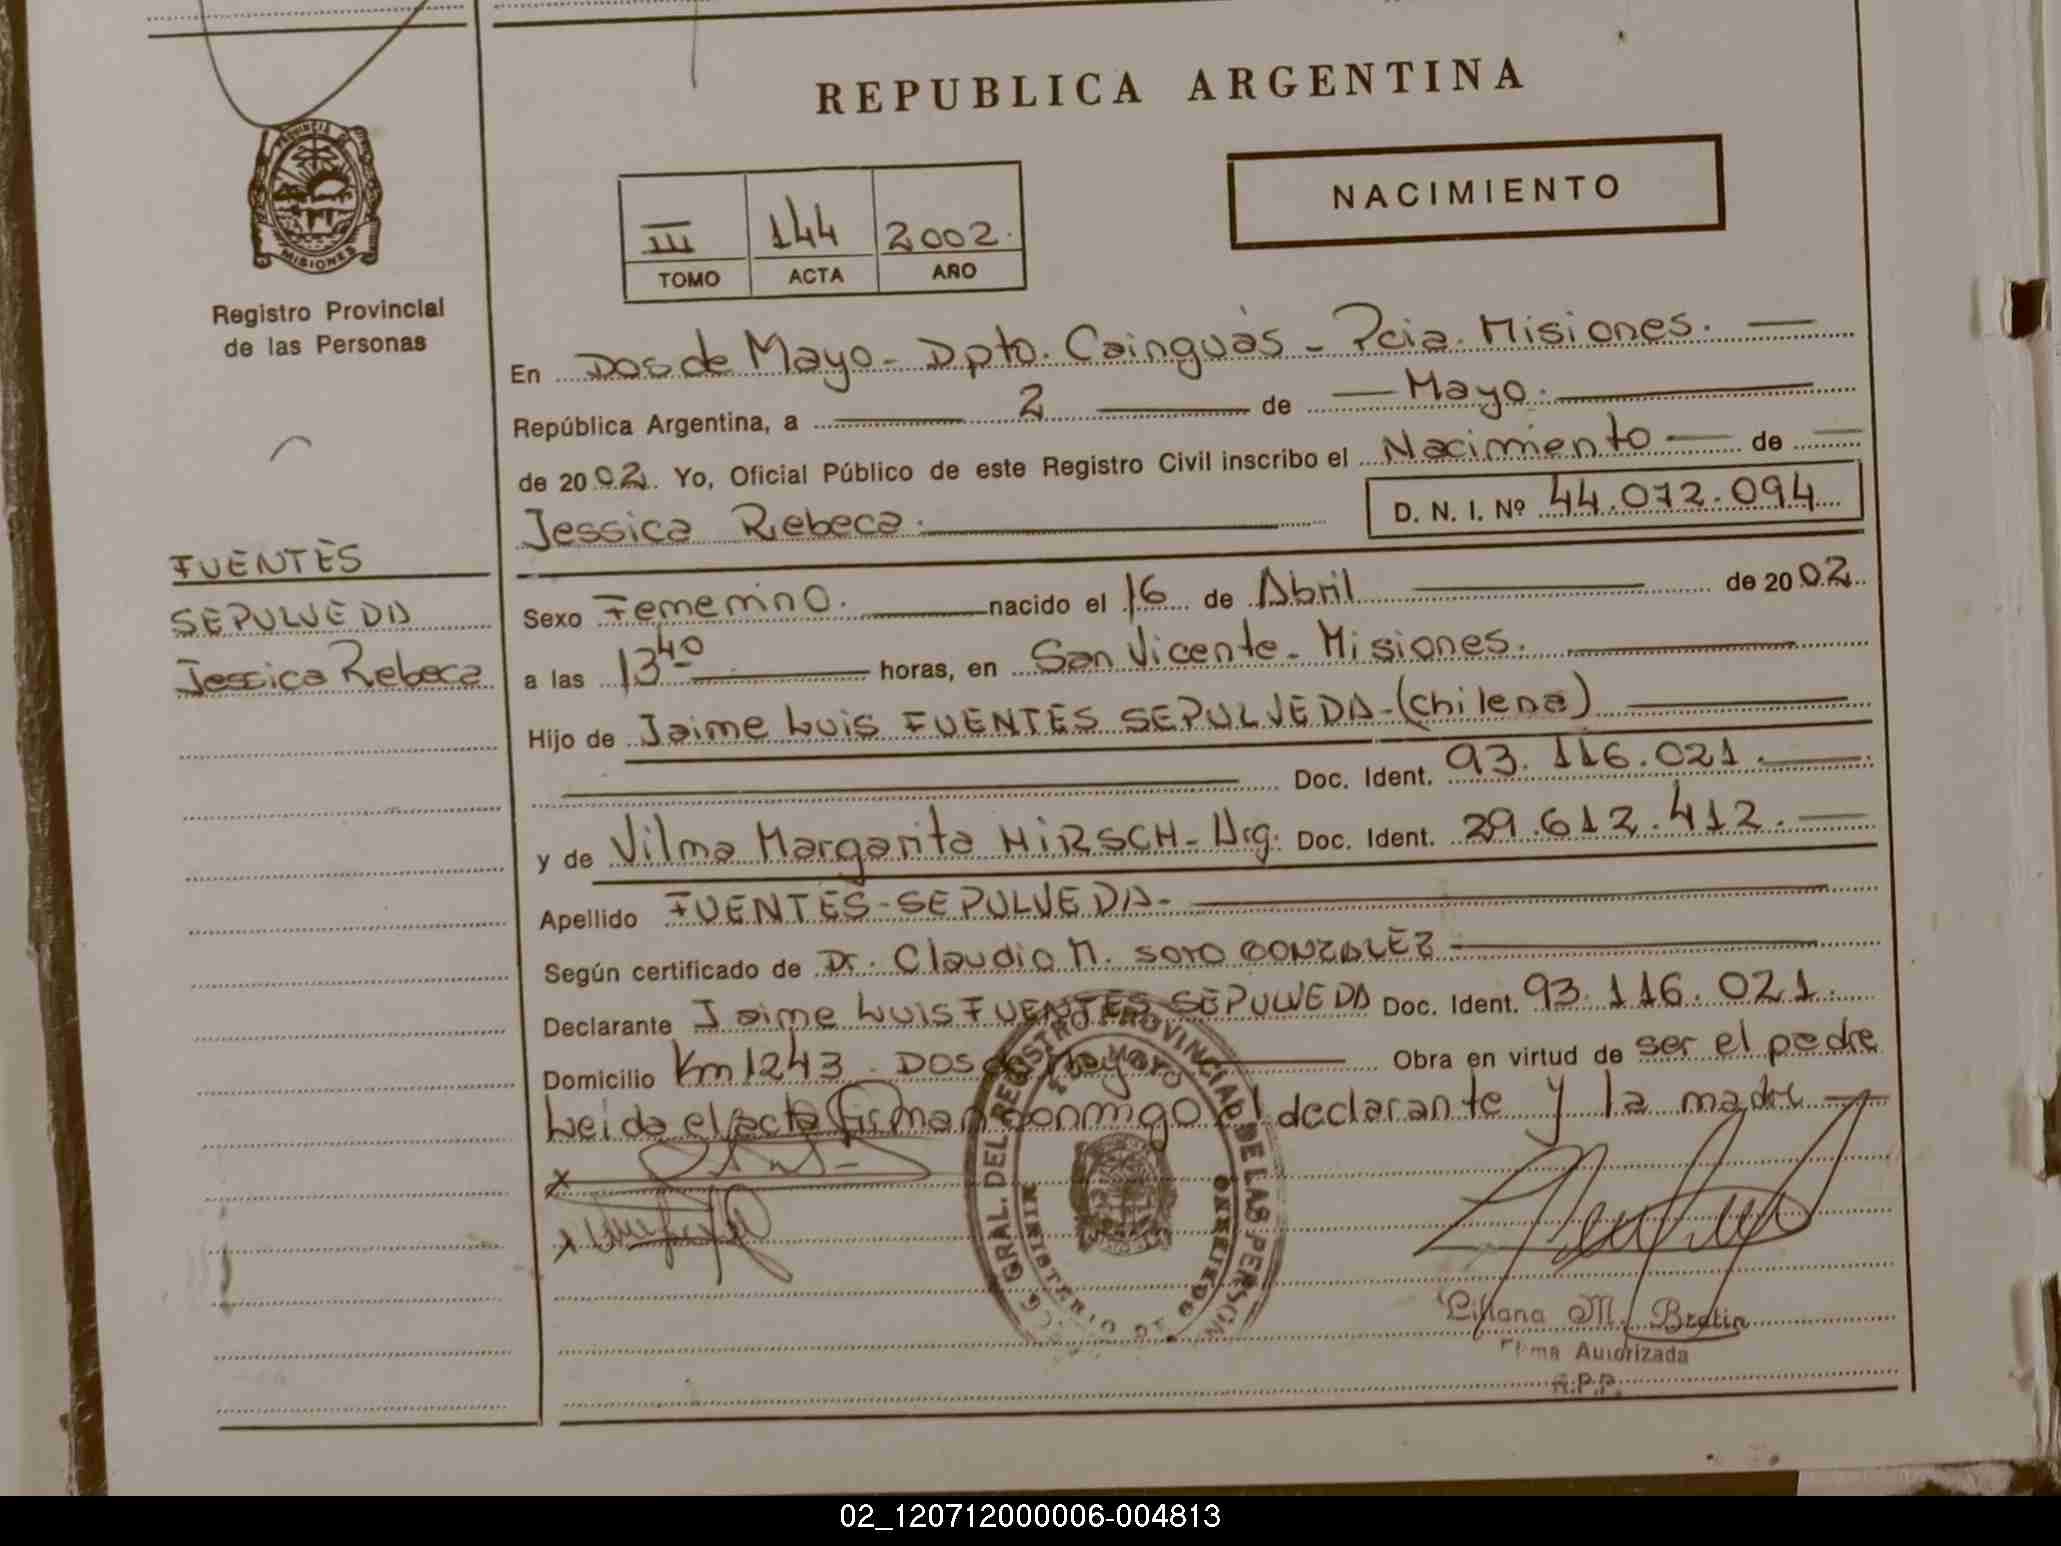 REPUBLICA ARGENTINA
NACIMIENTO
III 144 2002.
TOMO ACTA AÑO
PROVINCIA DE
MISIONES
Registro Provincial
de las Personas
FUENTES
SEPULVEDA
Jessica Rebeca
En Dos de Mayo - Dpto. Cainguás - Pcia. Misiones.
República Argentina, a 2 de Mayo.
de 2002. Yo, Oficial Público de este Registro Civil inscribo el Nacimiento de
Jessica Rebeca. D. N. I. Nº 44.072.094
Sexo Femenino. nacido el 16 de Abril de 2002.
a las 13 40 horas, en San Vicente - Misiones.
Hijo de Jaime Luis FUENTES SEPULVEDA - (chilena)
Doc. Ident. 93.116.021.
y de Vilma Margarita HIRSCH - Arg. Doc. Ident. 29.612.412.
Apellido FUENTES - SEPULVEDA -
Según certificado de Dr. Claudio M. SOTO GONZALEZ
Declarante Jaime Luis FUENTES SEPULVEDA Doc. Ident. 93.116.021.
Domicilio Km 1243 - Dos de Mayo Obra en virtud de ser el padre
Leida el acta firman conmigo el declarante y la madre
GRAL. DEL REGISTRO PROVINCIAL DE LAS PERSON
2 de MAYO
MINISTERIO DE GOBIERNO
Liliana M. Bratin
Firma Autorizada
R.P.P.
02_120712000006-004813